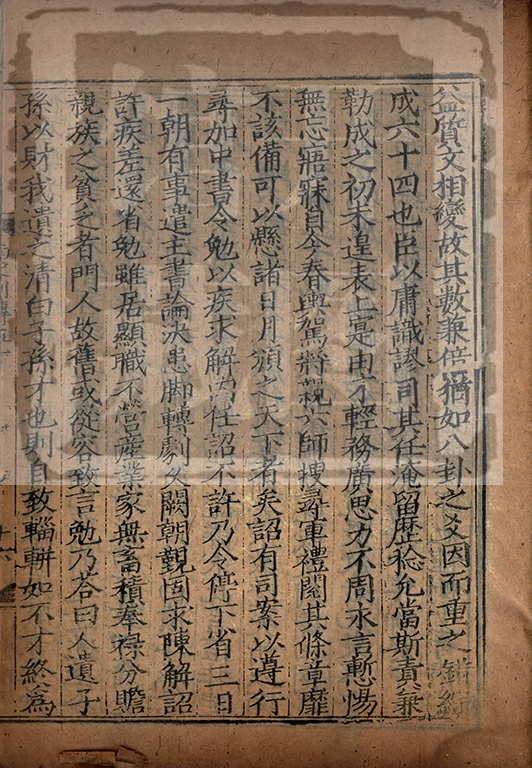 益質文相變故其數兼倍猶如八卦之爻因而重之錯綜
成六十四也臣以庸識謬司其任淹留歷稔允當斯責兼
勒成之初未遑表上寔由才輕務廣思力不周永言慙惕
無忘寤寐自今春輿駕將親六師搜尋軍禮閱其條章靡
不該備可以懸諸日月頒之天下者矣詔有司案以遵行
尋加中書令勉以疾求解當任詔不許乃令停下省三日
一朝有事遣主書論決患脚轉劇久闕朝覲固求陳解詔
許疾差還省勉雖居顯職不營産業家無畜積奉祿分贍
親族之貧乏者門人故舊或從容致言勉乃荅曰人遺子
孫以財我遺之清白子孫才也則自致輜軿如不才終爲